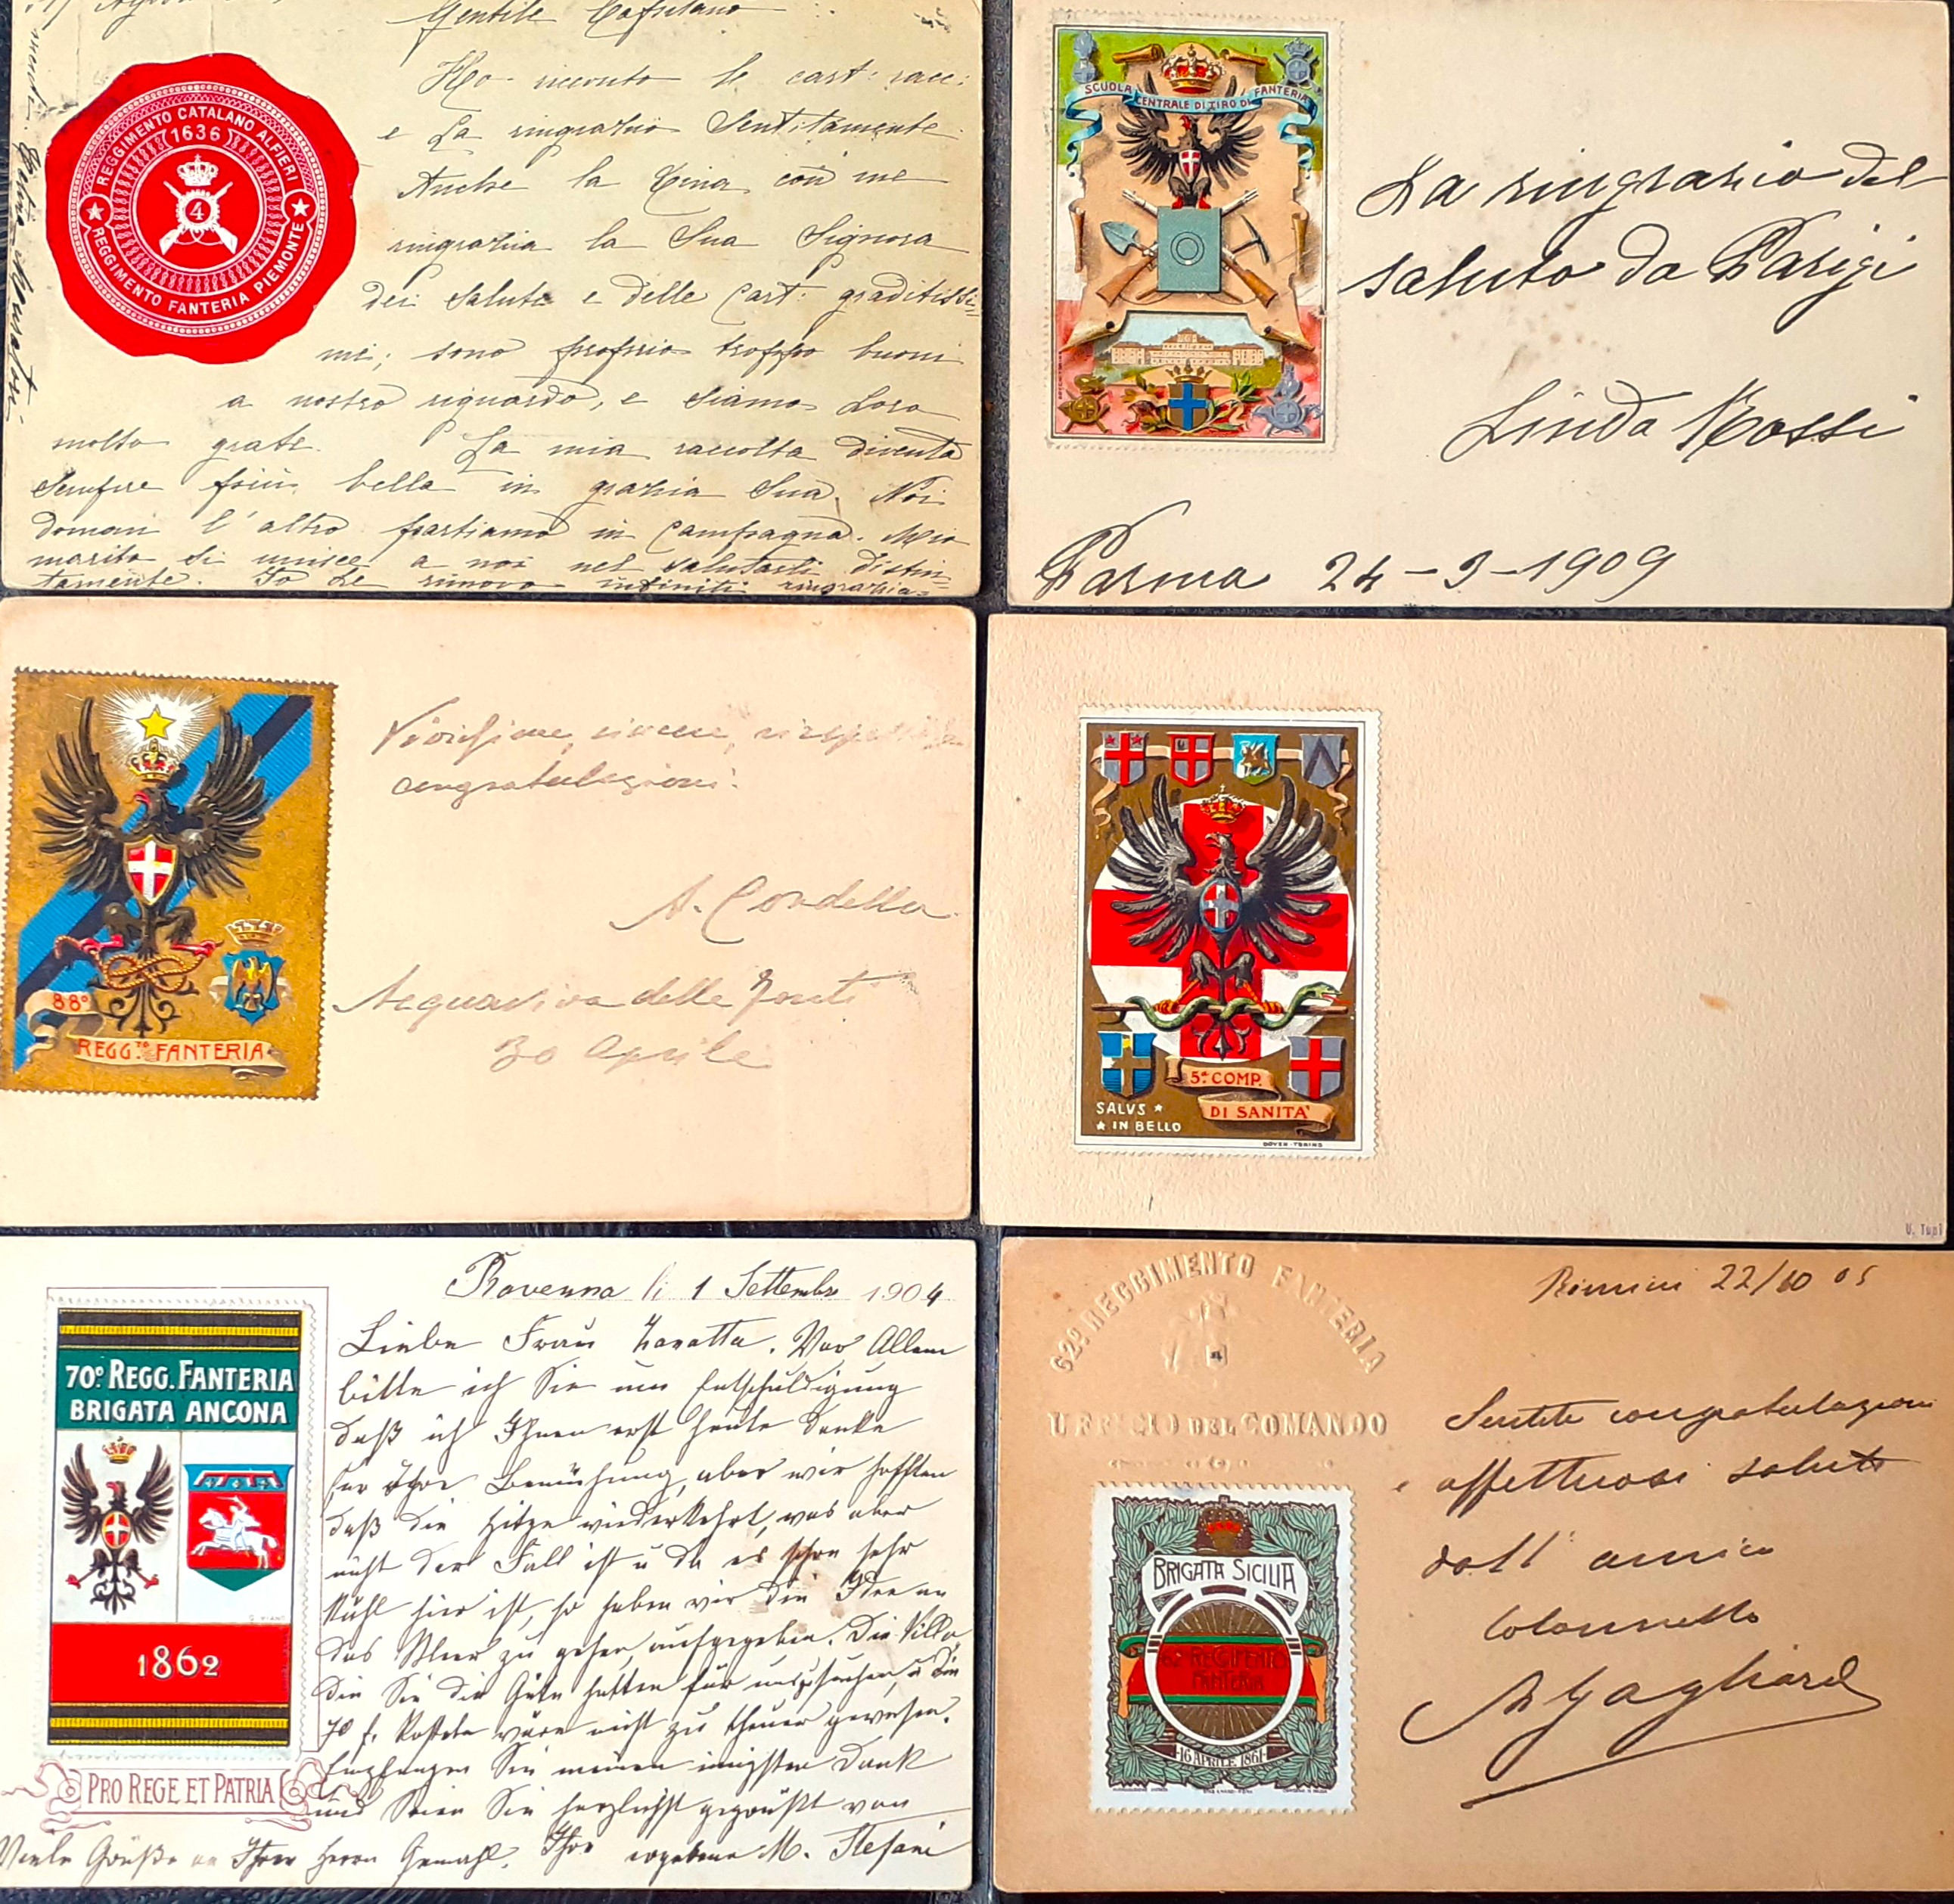 Gentile
Ho ricevuto le cart: racc:
e La ringrazio Sentitamente.
Anche la Gina con me
ringrazia la Sua Signora
dei saluti e delle Cart: graditissi-
mi; sono proprio troppo buoni
a nostro riguardo, e siamo Loro
molto grate. La mia raccolta diventa
sempre più bella in grazia Sua. Noi
domani l'altro partiamo in Campagna. Mio
marito si unisce a noi nel salutarti distin-
tamente. Io Le rinnovo infiniti ringrazia-
REGGIMENTO CATALANO ALFIERI
1636
4
REGGIMENTO FANTERIA PIEMONTE
SCUOLA CENTRALE DI TIRO DI FANTERIA
La ringrazio del
saluto da Parigi
Linda Rossi
Parma 24-3-1909
88º
REGG.TO FANTERIA
congratulazioni.
A. Cordella
Acquaviva delle Fonti
30 Aprile
5ª COMP.
DI SANITA'
SALVS
IN BELLO
DOYEN-TORINO
Ravenna li 1 Settembre 1904
70º REGG. FANTERIA
BRIGATA ANCONA
1862
PRO REGE ET PATRIA
Liebe Frau Zanatta. Vor Allem
bitte ich Sie um Entschuldigung
daß ich Ihnen erst heute danke
für Ihre Bemühung, aber wir hofften
daß die Hitze wiederkehrt, was aber
nicht der Fall ist u da es schon sehr
kühl hier ist, so haben wir die Idee an
das Meer zu gehen, aufgegeben. Die Villa,
die Sie die Güte hatten für uns zu suchen, u die
70 f. kostete wäre nicht zu theuer gewesen.
Empfangen Sie meinen innigsten Dank
und Seien Sie herzlichst gegrüßt von
Viele Grüße an Ihren Herrn Gemahl. Ihre ergebene M. Stefani
62º REGGIMENTO FANTERIA
UFFICIO DEL COMANDO
Rimini 22/10 05
Sentite congratulazioni
e affettuosi saluti
dall'amico
Colonnello
A Gagliardi
BRIGATA SICILIA
62º REGGIMENTO
FANTERIA
16 APRILE 1861